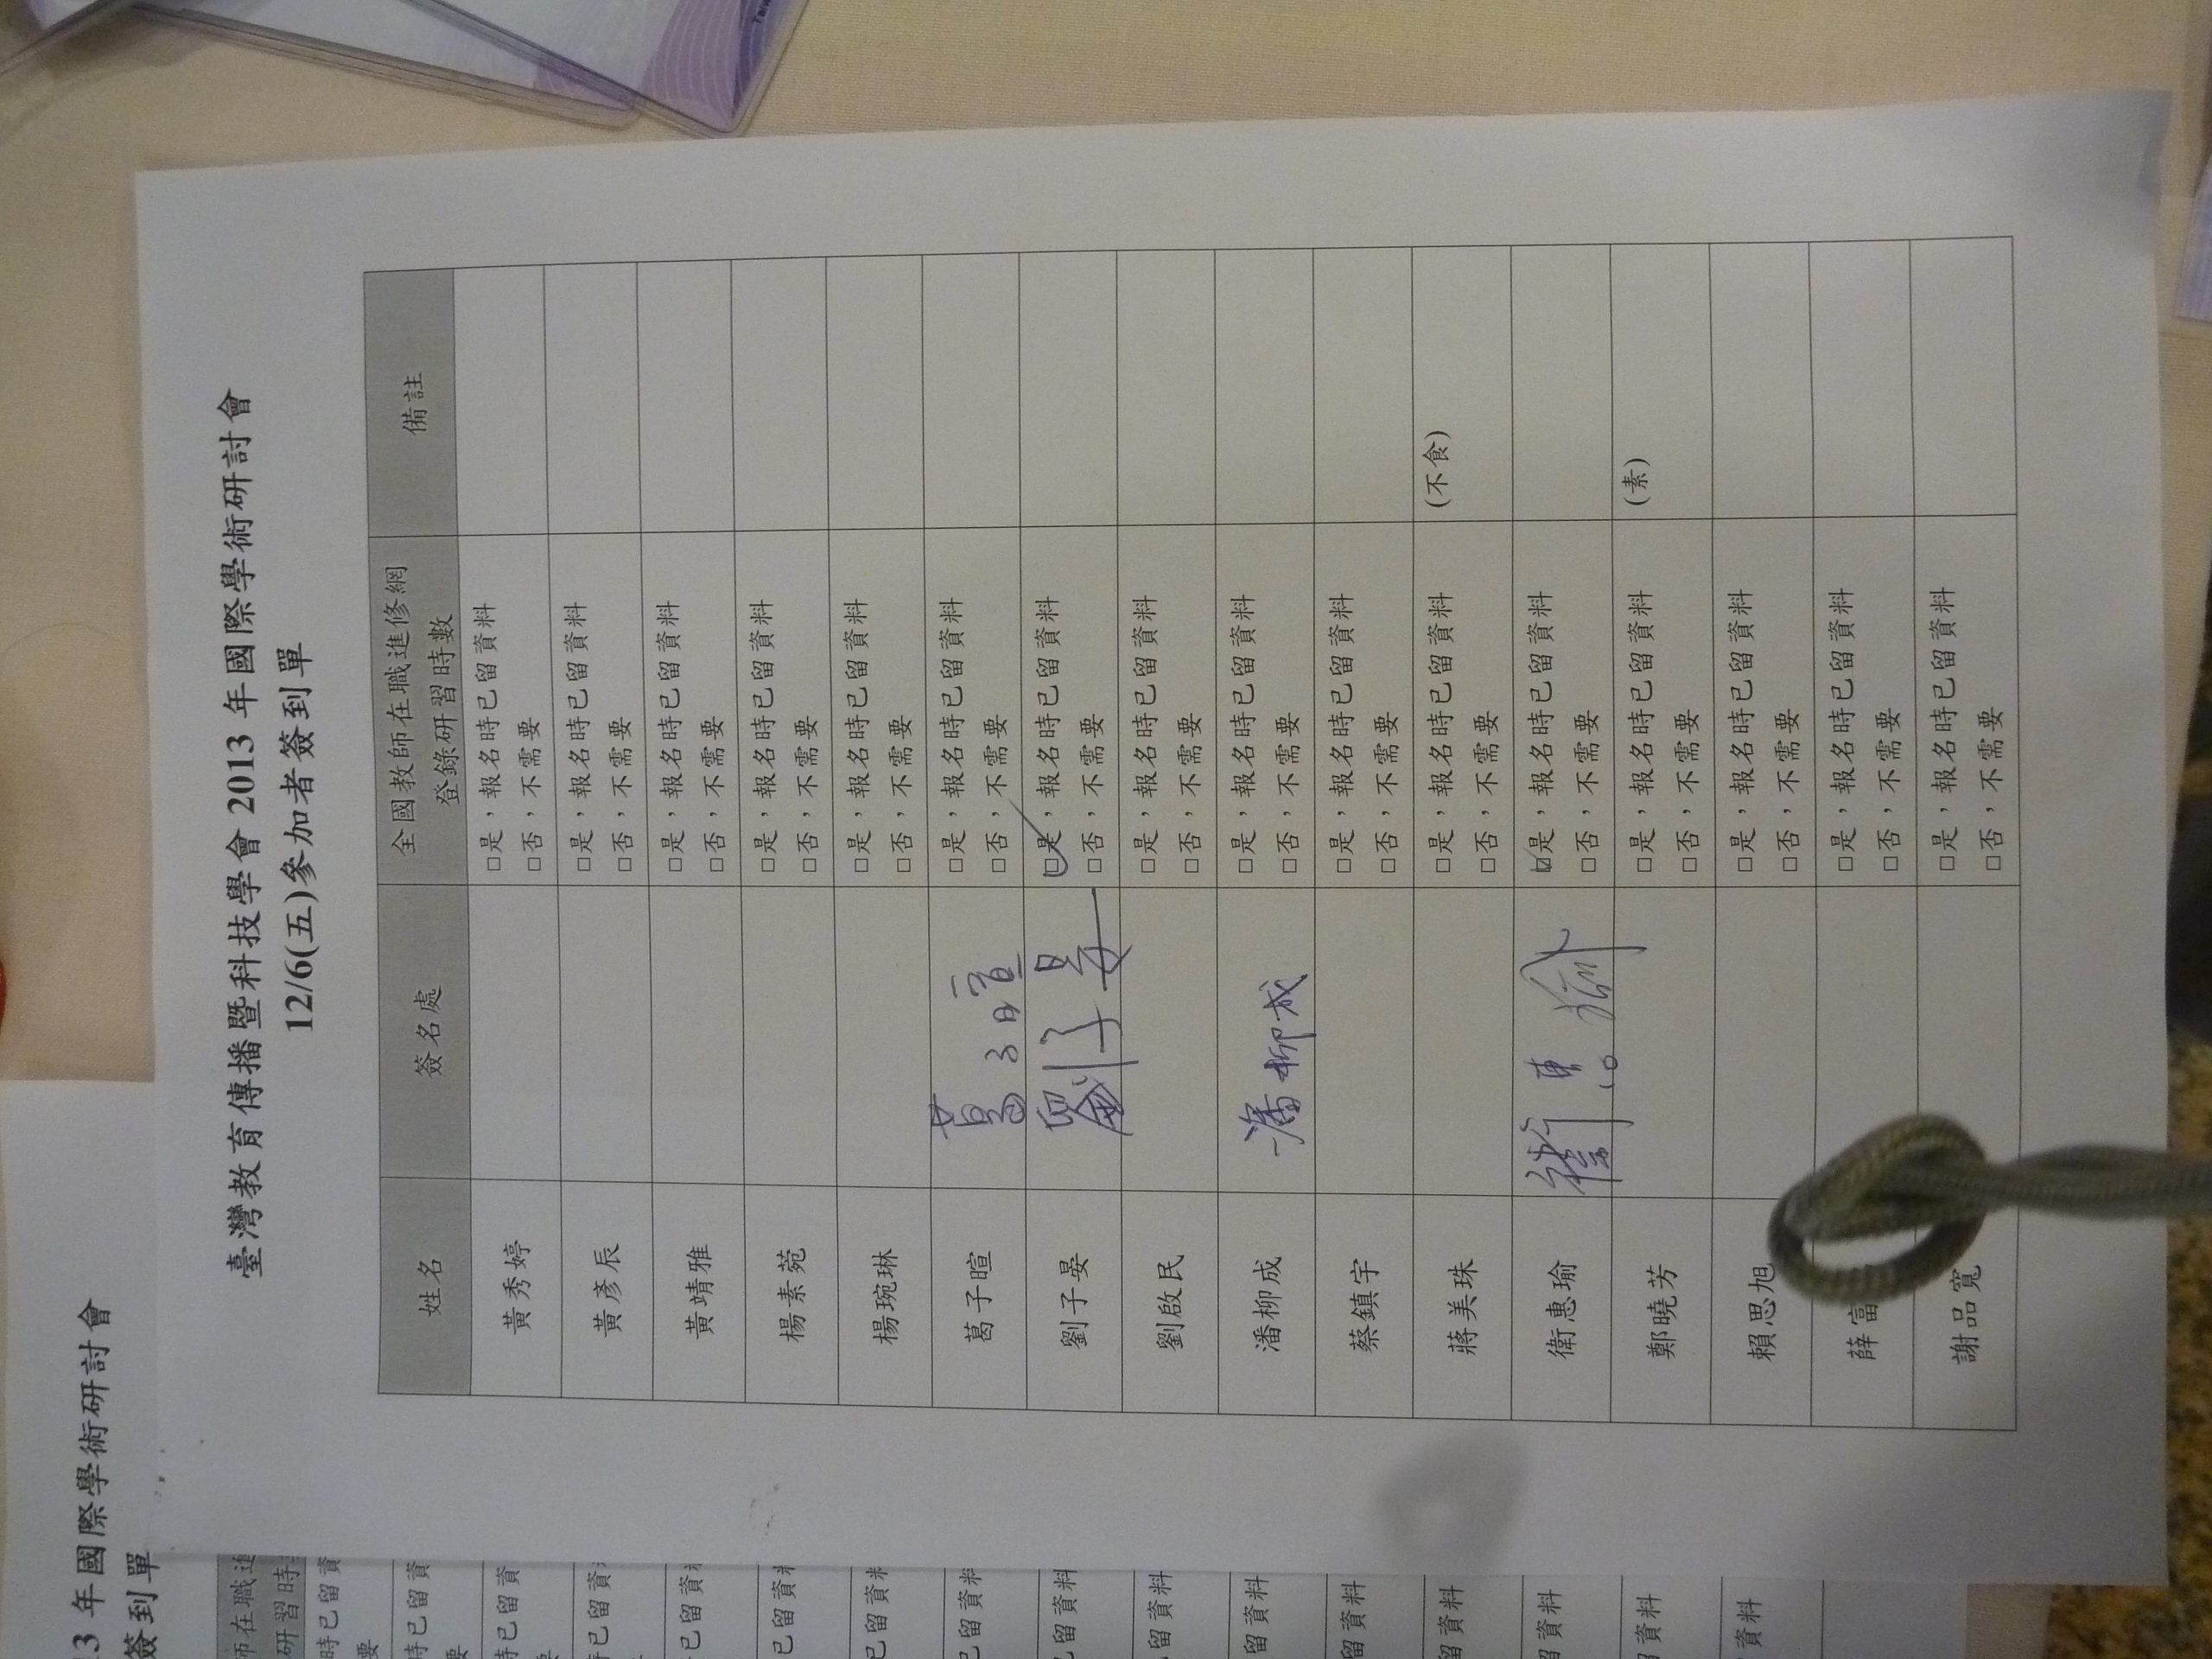 臺灣教育傳播暨科技學會 2013 年國際學術研討會
12/6(五)參加者簽到單
姓名 簽名處 全國教師在職進修網 備註
登錄研習時數
黃秀婷 □是，報名時已留資料
□否，不需要
黃彥辰 □是，報名時已留資料
□否，不需要
黃靖雅 □是，報名時已留資料
□否，不需要
楊素菀 □是，報名時已留資料
□否，不需要
楊琬琳 □是，報名時已留資料
□否，不需要
葛子暄 葛子暄 □是，報名時已留資料
□否，不需要
劉子晏 劉子晏 □是，報名時已留資料
□否，不需要
劉啟民 □是，報名時已留資料
□否，不需要
潘柳成 潘柳成 □是，報名時已留資料
□否，不需要
蔡鎮宇 □是，報名時已留資料
□否，不需要
蔣美珠 □是，報名時已留資料 (不食)
□否，不需要
衛惠瑜 衛惠瑜 □是，報名時已留資料
□否，不需要
鄭曉芳 □是，報名時已留資料 (素)
□否，不需要
賴思旭 □是，報名時已留資料
□否，不需要
薛富 □是，報名時已留資料
□否，不需要
謝品寬 □是，報名時已留資料
□否，不需要
13 年國際學術研討會
簽到單
師在職進
研習時
時已留資
要
時已留資
要
時已留資
已留資
已留資
已留資料
已留資料
已留資料
已留資料
已留資料
留資料
留資料
留資料
留資料
資料
資料